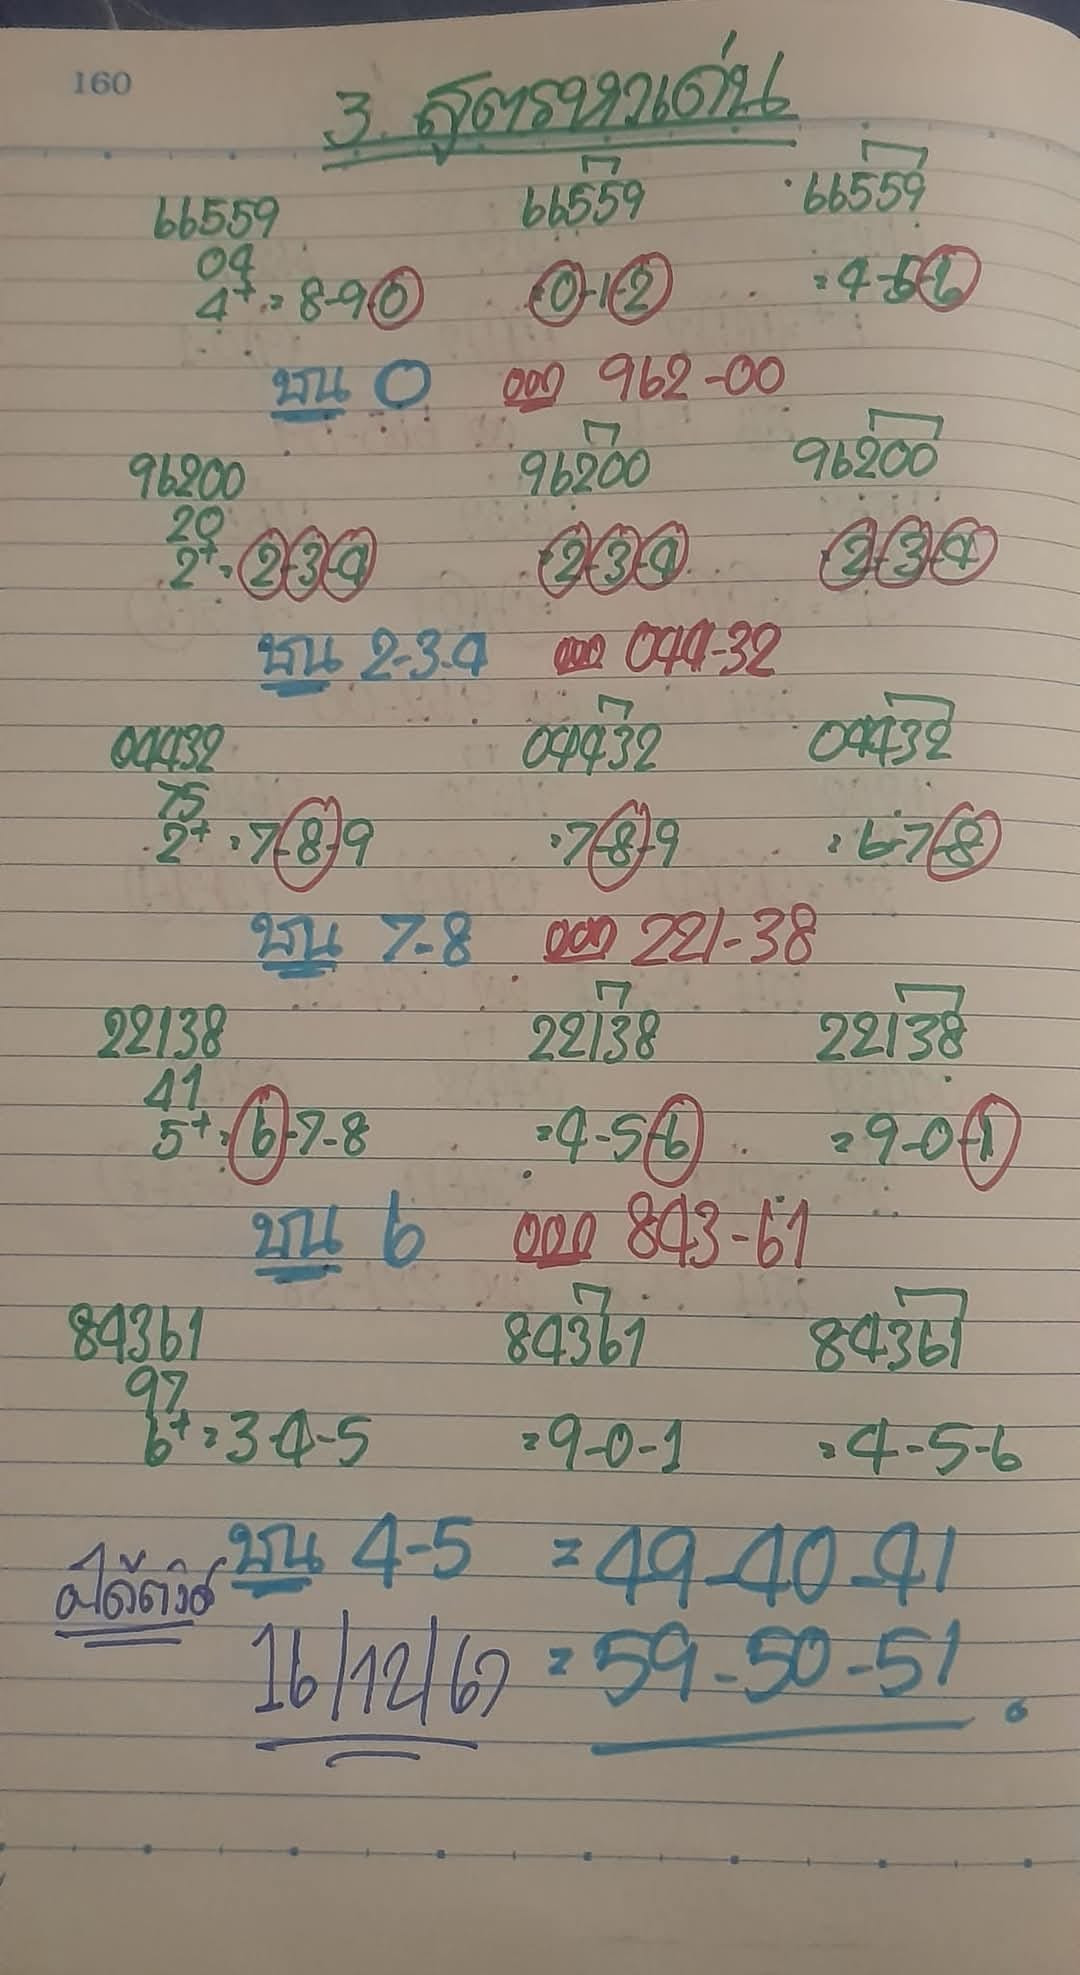 160
3 สูตรหวยเด่น
66559 66559 66559
04
4+ = 8-9-0 0-1-2 = 4-5-6
บน 0 ออก 962-00
96200 96200 96200
20
2+ = 2-3-4 2-3-4 2-3-4
บน 2-3-4 ออก 044-32
04432 04432 04432
75
2+ = 7-8-9 = 7-8-9 = 6-7-8
บน 7-8 ออก 221-38
22138 22138 22138
41
5+ = 6-7-8 = 4-5-6 = 9-0-1
บน 6 ออก 843-61
84361 84361 84361
97
6+ = 3-4-5 = 9-0-1 = 4-5-6
บน 4-5 = 49-40-41
16/12/67 = 59-50-51